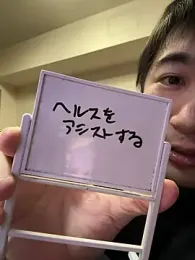 ヘルスを
アシストする